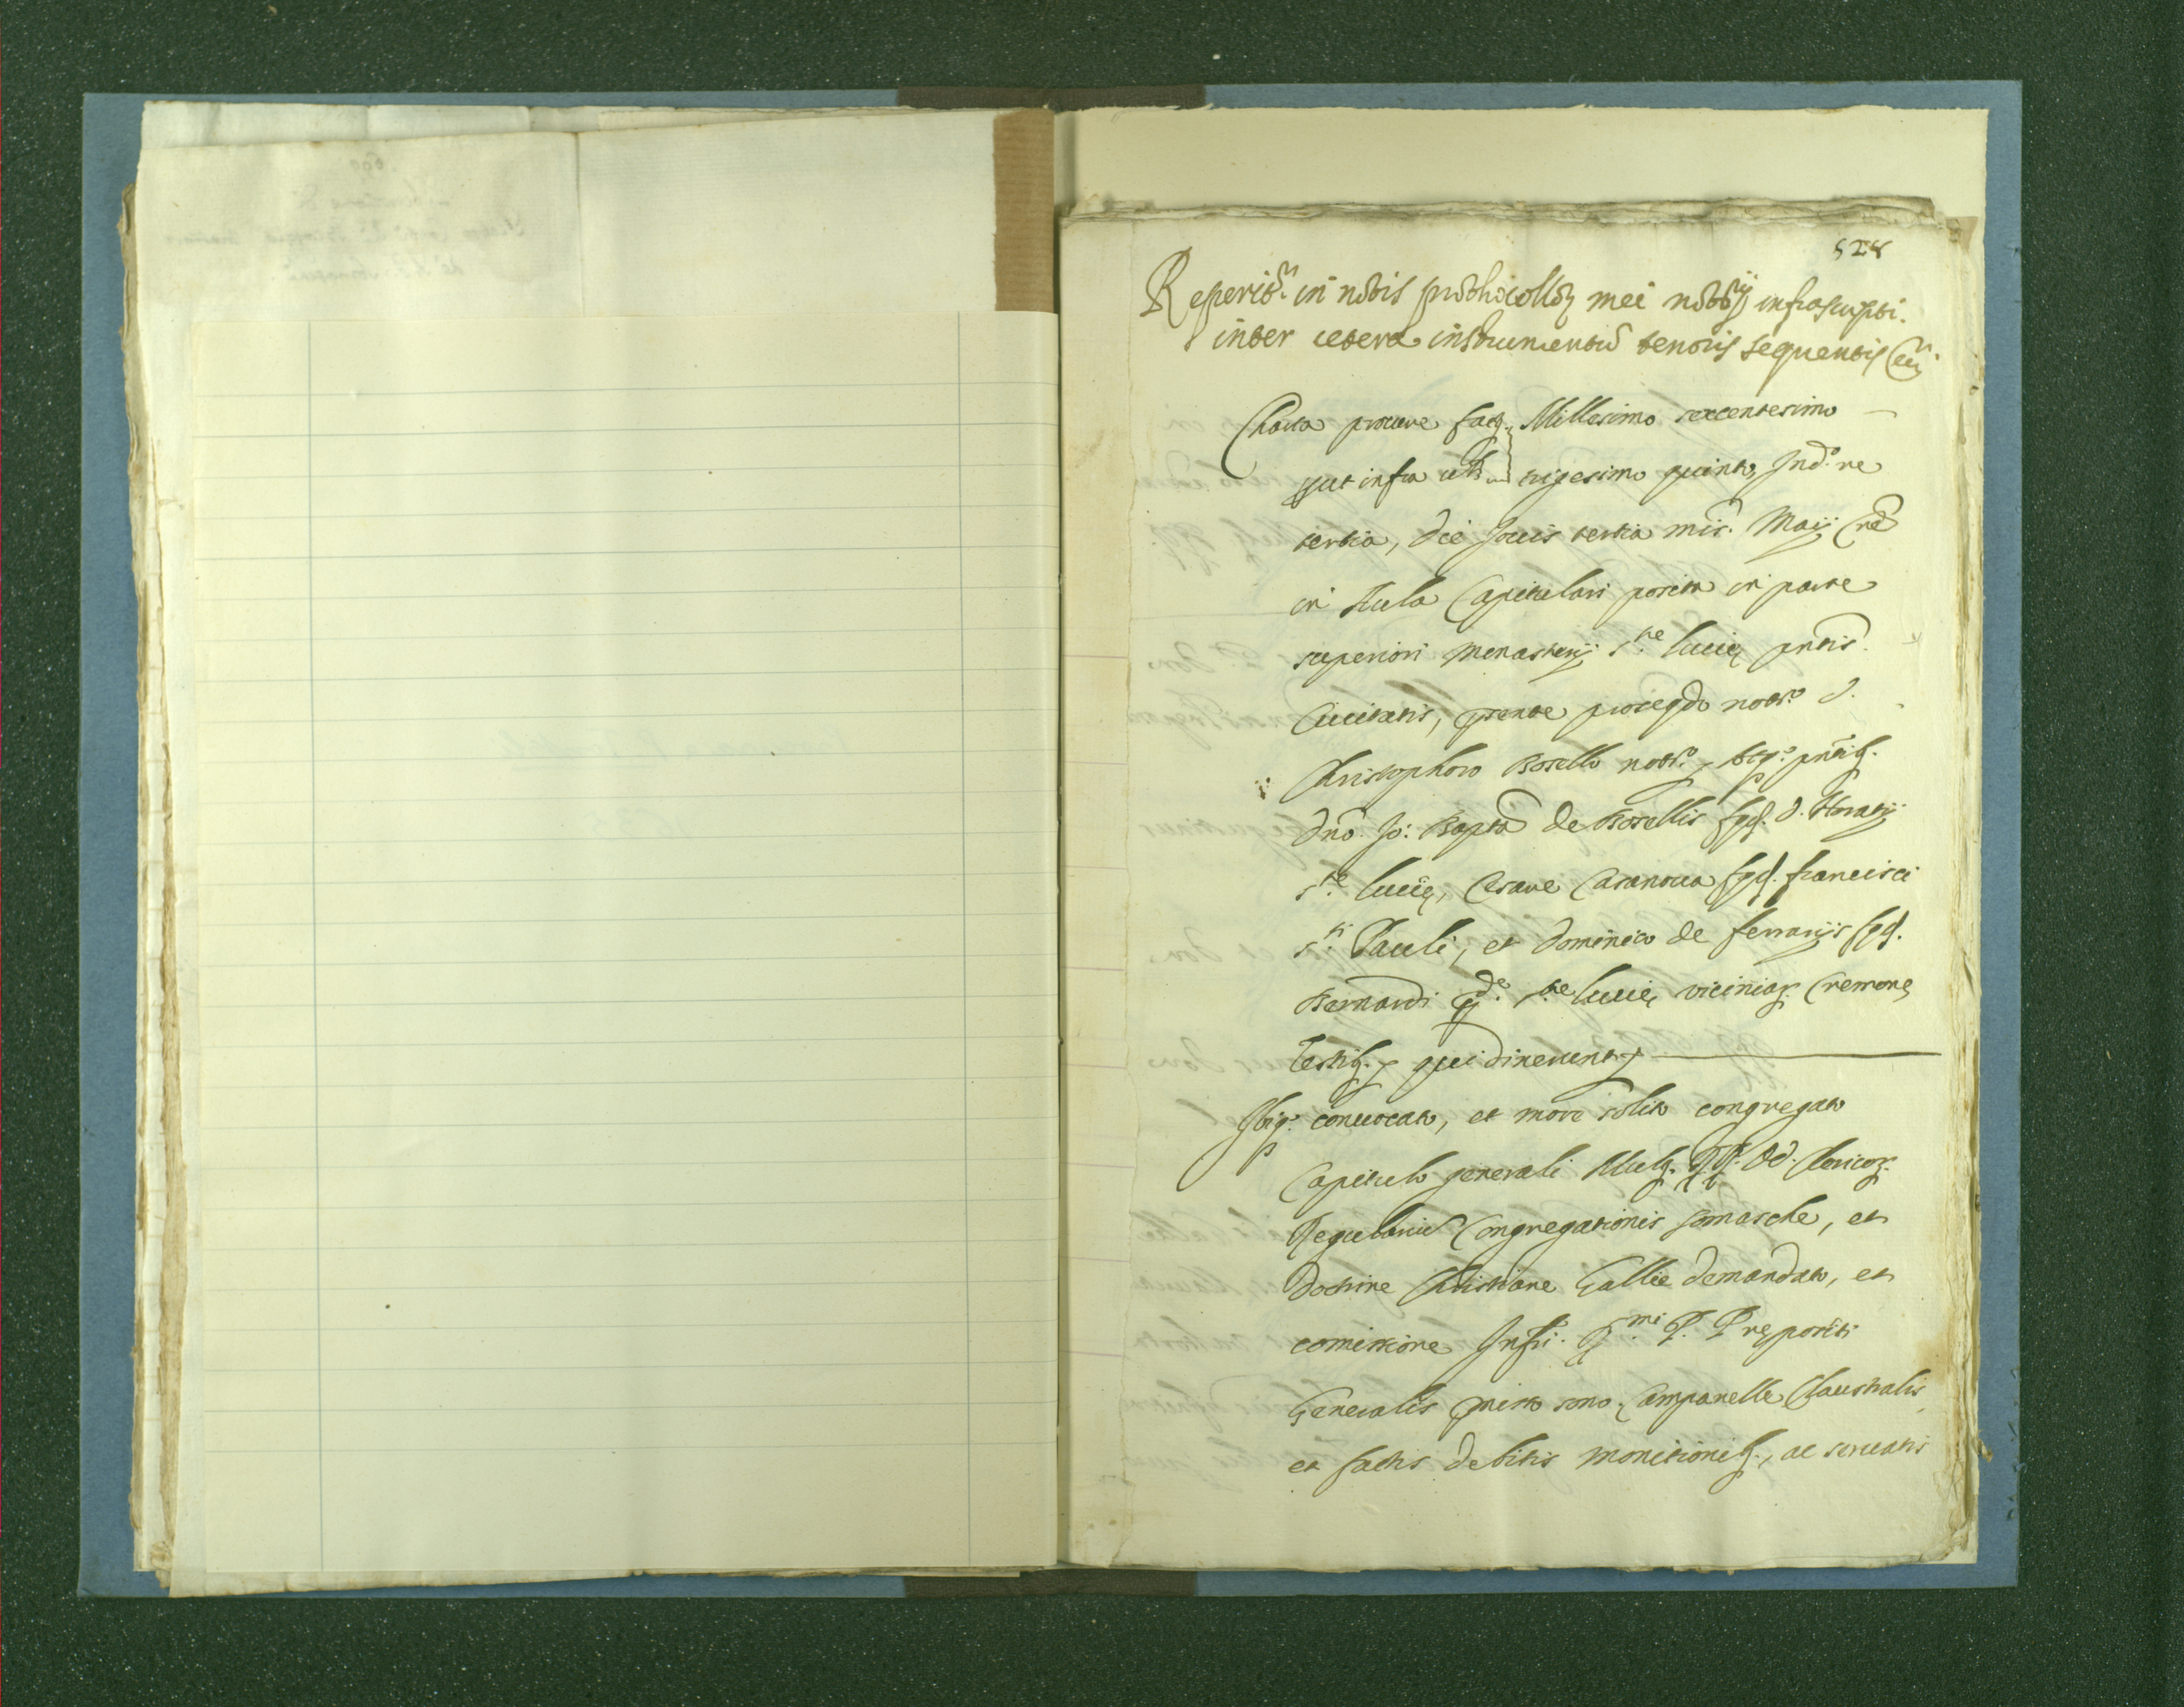 528
Reperitr. in notis prothocolloꝝ mei nottrij infrascripti.
inter cetera instrumentũ tenoris sequentis
Charta procure fact. Millesimo sexcentesimo
put infra trigesimo quinto, Ind.ne
tertia, die Jovis tertia mis. Maij
in Aula Capitulari posita in parte
superiori Monasterij S.te Lucię pntis.
Civitatis, pnte pro seqdo notro. D.
Christophoro Borello notro.
Dno. Jo: Bapta de Borellis fq. D. Horatij
S.te Lucię, Cesare Casanova fq. francisci
S.ti Pauli, et Dominico de ferrarijs fq.
Bernardi S.te Lucię, viciniaꝝ Cremonę
Testib. qui dixerunt
Ibiq. convocato, et more solito congregato
Capitulo generali Mulꝝ. RR. PP. Clericoꝝ.
Regulariũ Congregationis Somasche, et
Doctrine Christiane Gallie demandato, et
comissione Infri. R.mi P. Prępositi
Generalis pmisso sono Campanelle Claustralis,
et factis debitis monitionib., ac servatis